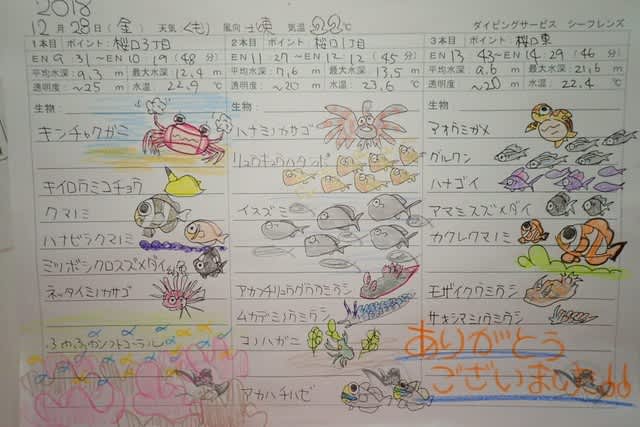 2018
12月28日(金) 天気 くもり 風向 北東 気温 22℃ ダイビングサービス シーフレンズ
1本目 ポイント: 桜口3丁目
EN 9:31〜EX 10:19 (48分)
平均水深: 9.3m 最大水深: 12.4m
透明度: 〜25m 水温: 22.9℃
生物:
キンチャクガニ
キイロウミコチョウ
クマノミ
ハナビラクマノミ
ミツボシクロスズメダイ
ネッタイミノカサゴ
2本目 ポイント: 桜口1丁目
EN 11:27〜EN 12:12 (45分)
平均水深: 7.6m 最大水深: 13.5m
透明度: 〜20m 水温: 23.6℃
生物:
ハナミノカサゴ
リュウキュウハタンポ
イスズミ
アカフチリュウグウウミウシ
ムカデミノウミウシ
コノハガニ
アカハチハゼ
3本目 ポイント: 桜口東
EN 13:43〜EN 14:29 (46分)
平均水深: 9.6m 最大水深: 21.6m
透明度: 〜20m 水温: 22.4℃
生物:
アオウミガメ
グルクン
ハナゴイ
アマミスズメダイ
カクレクマノミ
モザイクウミウシ
サキシマミノウミウシ
ありがとう
ございました!!